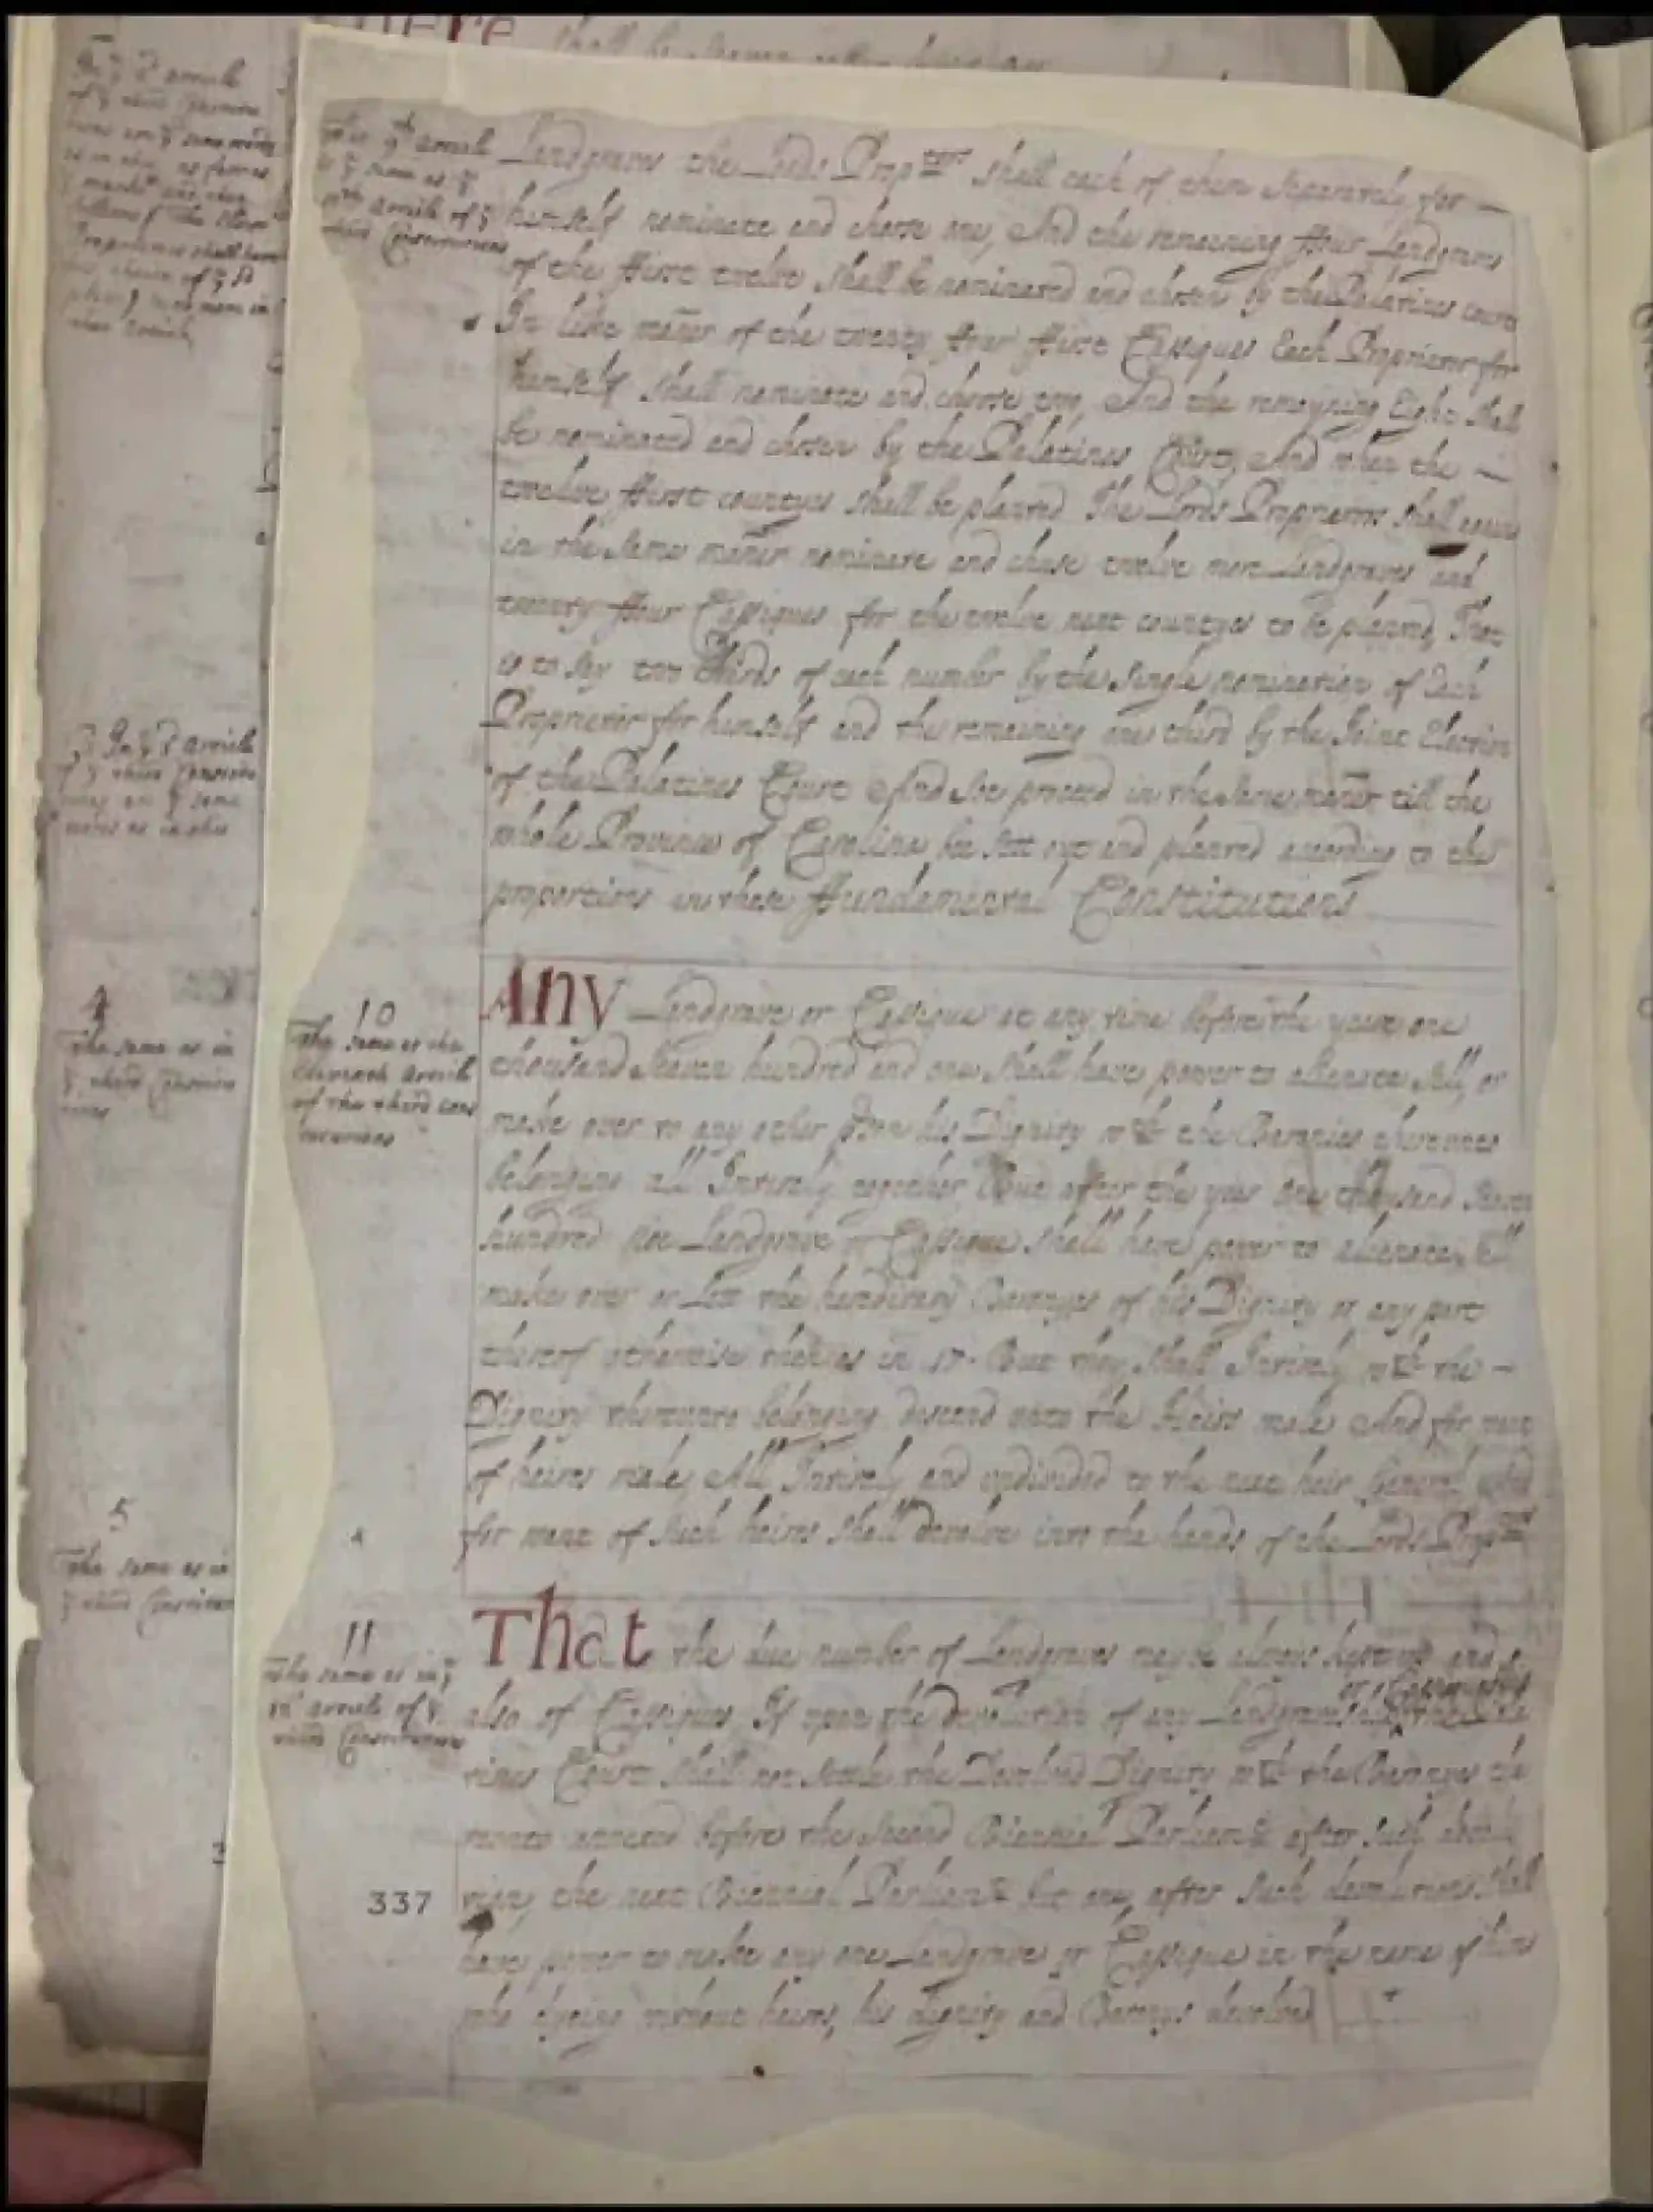 here shall be
The 9th Article
is ye same as ye
Article of ye
third Constitutions
Landgraves the Lords Proptors shall each of them separately for
himself nominate and choose one, And the remaining ffour Landgraves
of the ffirst twelve shall be nominated and chosen by the Palatines Court
In like mañer of the twenty ffour ffirst Cassiques Each Proprietor for
himself shall nominate and choose two, And the remayning Eight shall
be nominated and chosen by the Palatines Court, And when the
twelve ffirst countyes shall be planted The Lords Proprietors shall againe
in the same mañer nominate and chuse twelve more Landgraves and
twenty ffour Cassiques for the twelve next countyes to be planted, That
is to say two thirds of each number by the single nomination of Each
Proprietor for himself and the remaining one third by the Joint Election
of the Palatines Court And soe proceed in the same mañer till the
whole Province of Carolina be sett out and planted according to the
proportions in these ffundamental Constitutions
10
The same as the
Eleventh Article
of the third Cons
titutions
Any Landgrave or Cassique at any time before the yeare one
thousand Seaven hundred and one shall have power to alienate, sell, or
make over to any other pson his Dignity wth the Baronies thereunto
belonging all Intirely together But after the year one thousand Seaven
hundred noe Landgrave or Cassique shall have power to alienate, sell
make over or Lett the hereditary Baronyes of his Dignity or any part
thereof otherwise then as in 17. But they shall Intirely wth the
Dignity thereunto belonging descend unto the Heirs male And for want
of heires male, All Intirely and undivided to the next heir Generall, and
for want of such heires shall devolve into the hands of the Lords Proptors
11
The same as in ye
12th Article of ye
third Constitutions
That the due number of Landgraves may be always kept up and
also of Cassiques, If upon the devolution of any Landgraveship
or Cassiqueship
tines Court shall not settle the Devolved Dignity wth the Baronyes the
reunto annexed before the second Biennial Parliamt after such devolu
tion, the next Biennial Parliamt but one, after such devolution shall
have power to make any one Landgrave or Cassique in the roome of him
who dyeing without heires, his dignity and Baronys devolved
337
3 In ye 3d Article
of ye third Constitu
tions are ye same
words as in this
4
The same as in
ye third Constitu
tions
5
The same as in
ye third Constitu